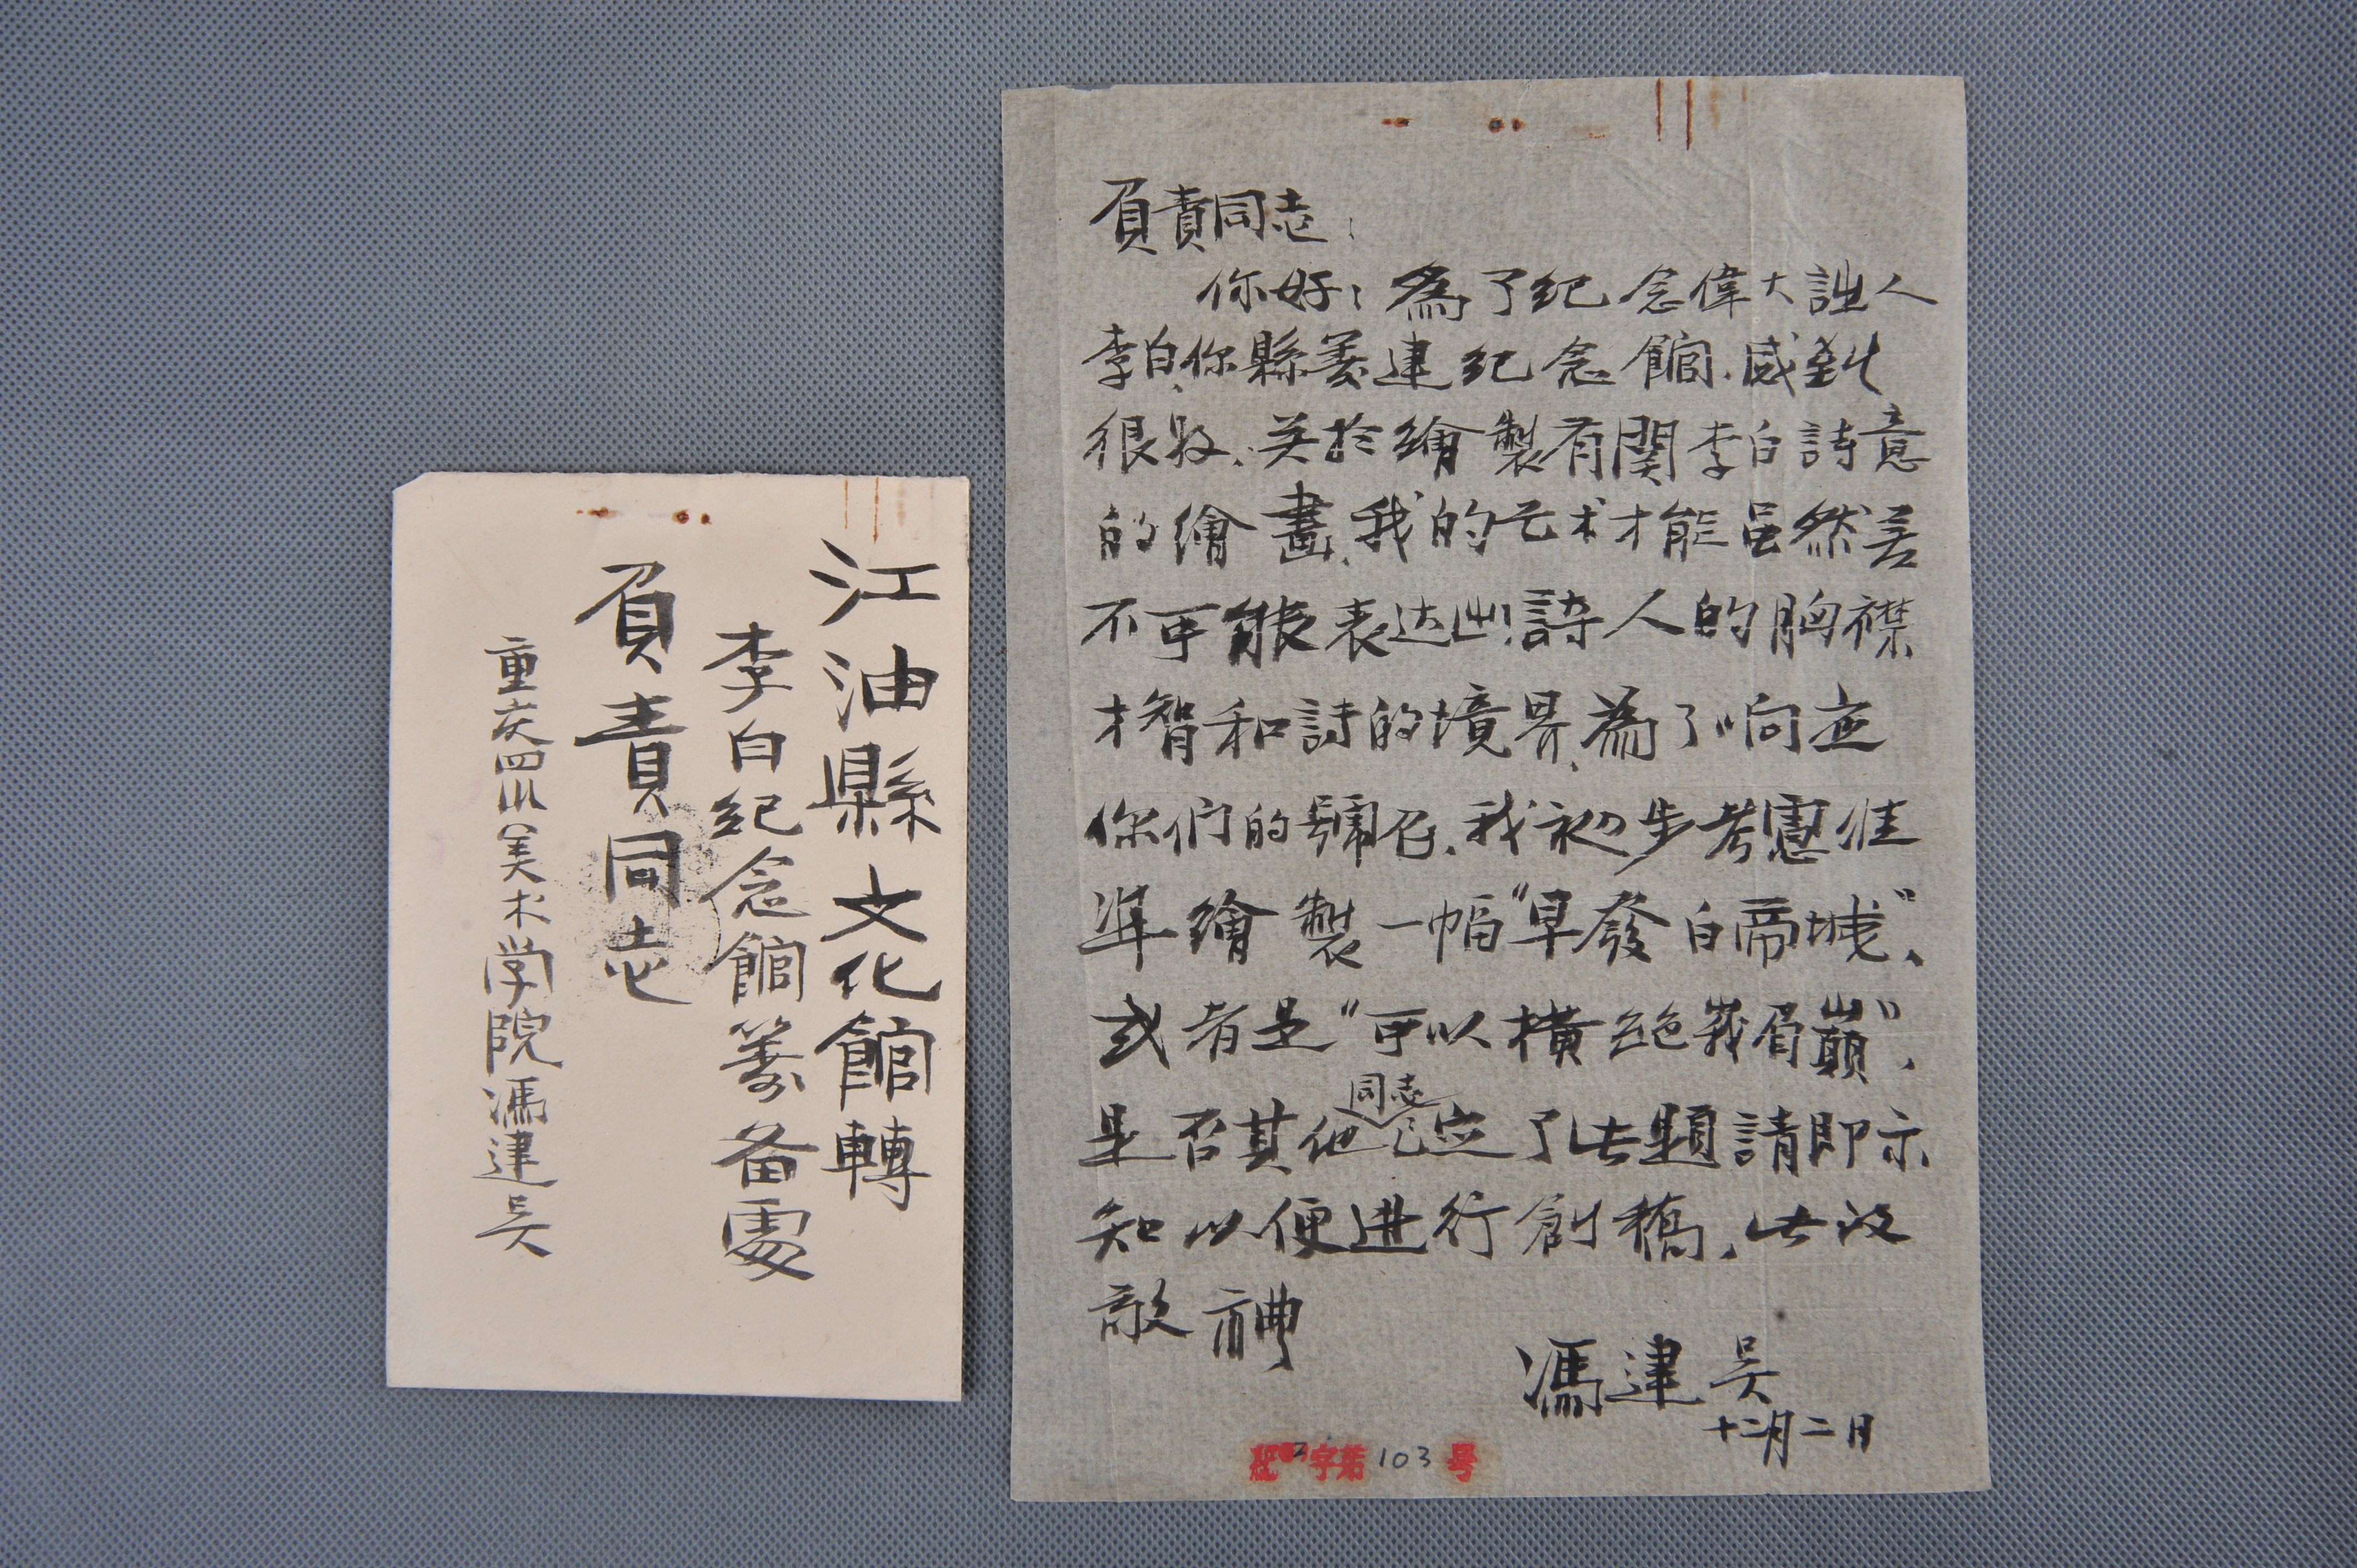 江油縣文化館轉
李白纪念館筹备處
負責同志
重庆四川美术学院馮建吴
負責同志：
你好！為了纪念偉大詩人
李白，你縣筹建纪念館，感到
很好，关於繪製有関李白詩意
的繪畫，我的艺术才能虽然差
不可能表达出詩人的胸襟、
才智和詩的境界，為了响应
你们的號召，我初步考慮准
準繪製一幅“早發白帝城”、
或者是“可以横绝峩眉巔”，
是否其他同志已定了此題請即示
知以便进行創稿，此致
敬禮
馮建吴
十二月二日
字第103号